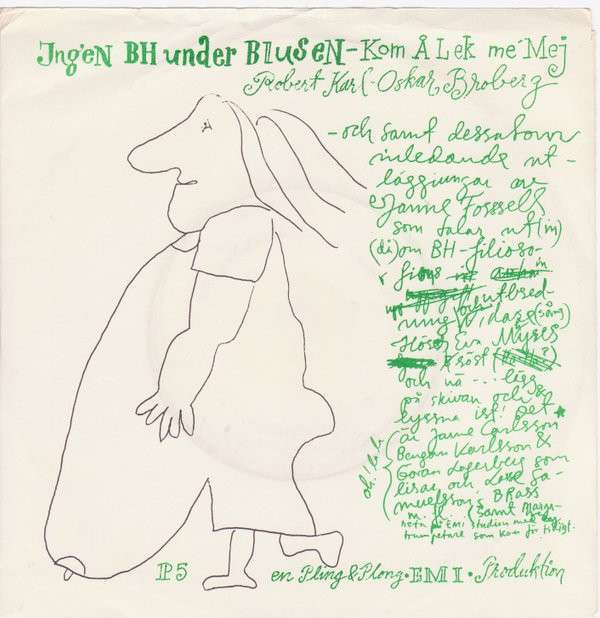 IngEN BH under BlusEN - Kom Å Lek me' Mej
Robert Karl-Oskar Broberg
- och samt dessutom
inledande ut-
läggningar av
Janne Forssell
som talar ut (in)
(di) om BH-filioso-
utbred-
ning Widar (sång)
Höse Eva Myses
röst
och nä ... lägg
på skivan och
lyssna ist! Det
är Janne Carlsson
oh! la la
Bengan Karlsson &
Göran Lagerberg som
lirar och Lasse Sa-
muelsson's BRASS
m. fl. (samt Marga-
reta på EMI studion med
trumpetare som kom för tidigt.
IP5
en Pling & Plong • EMI • Produktion